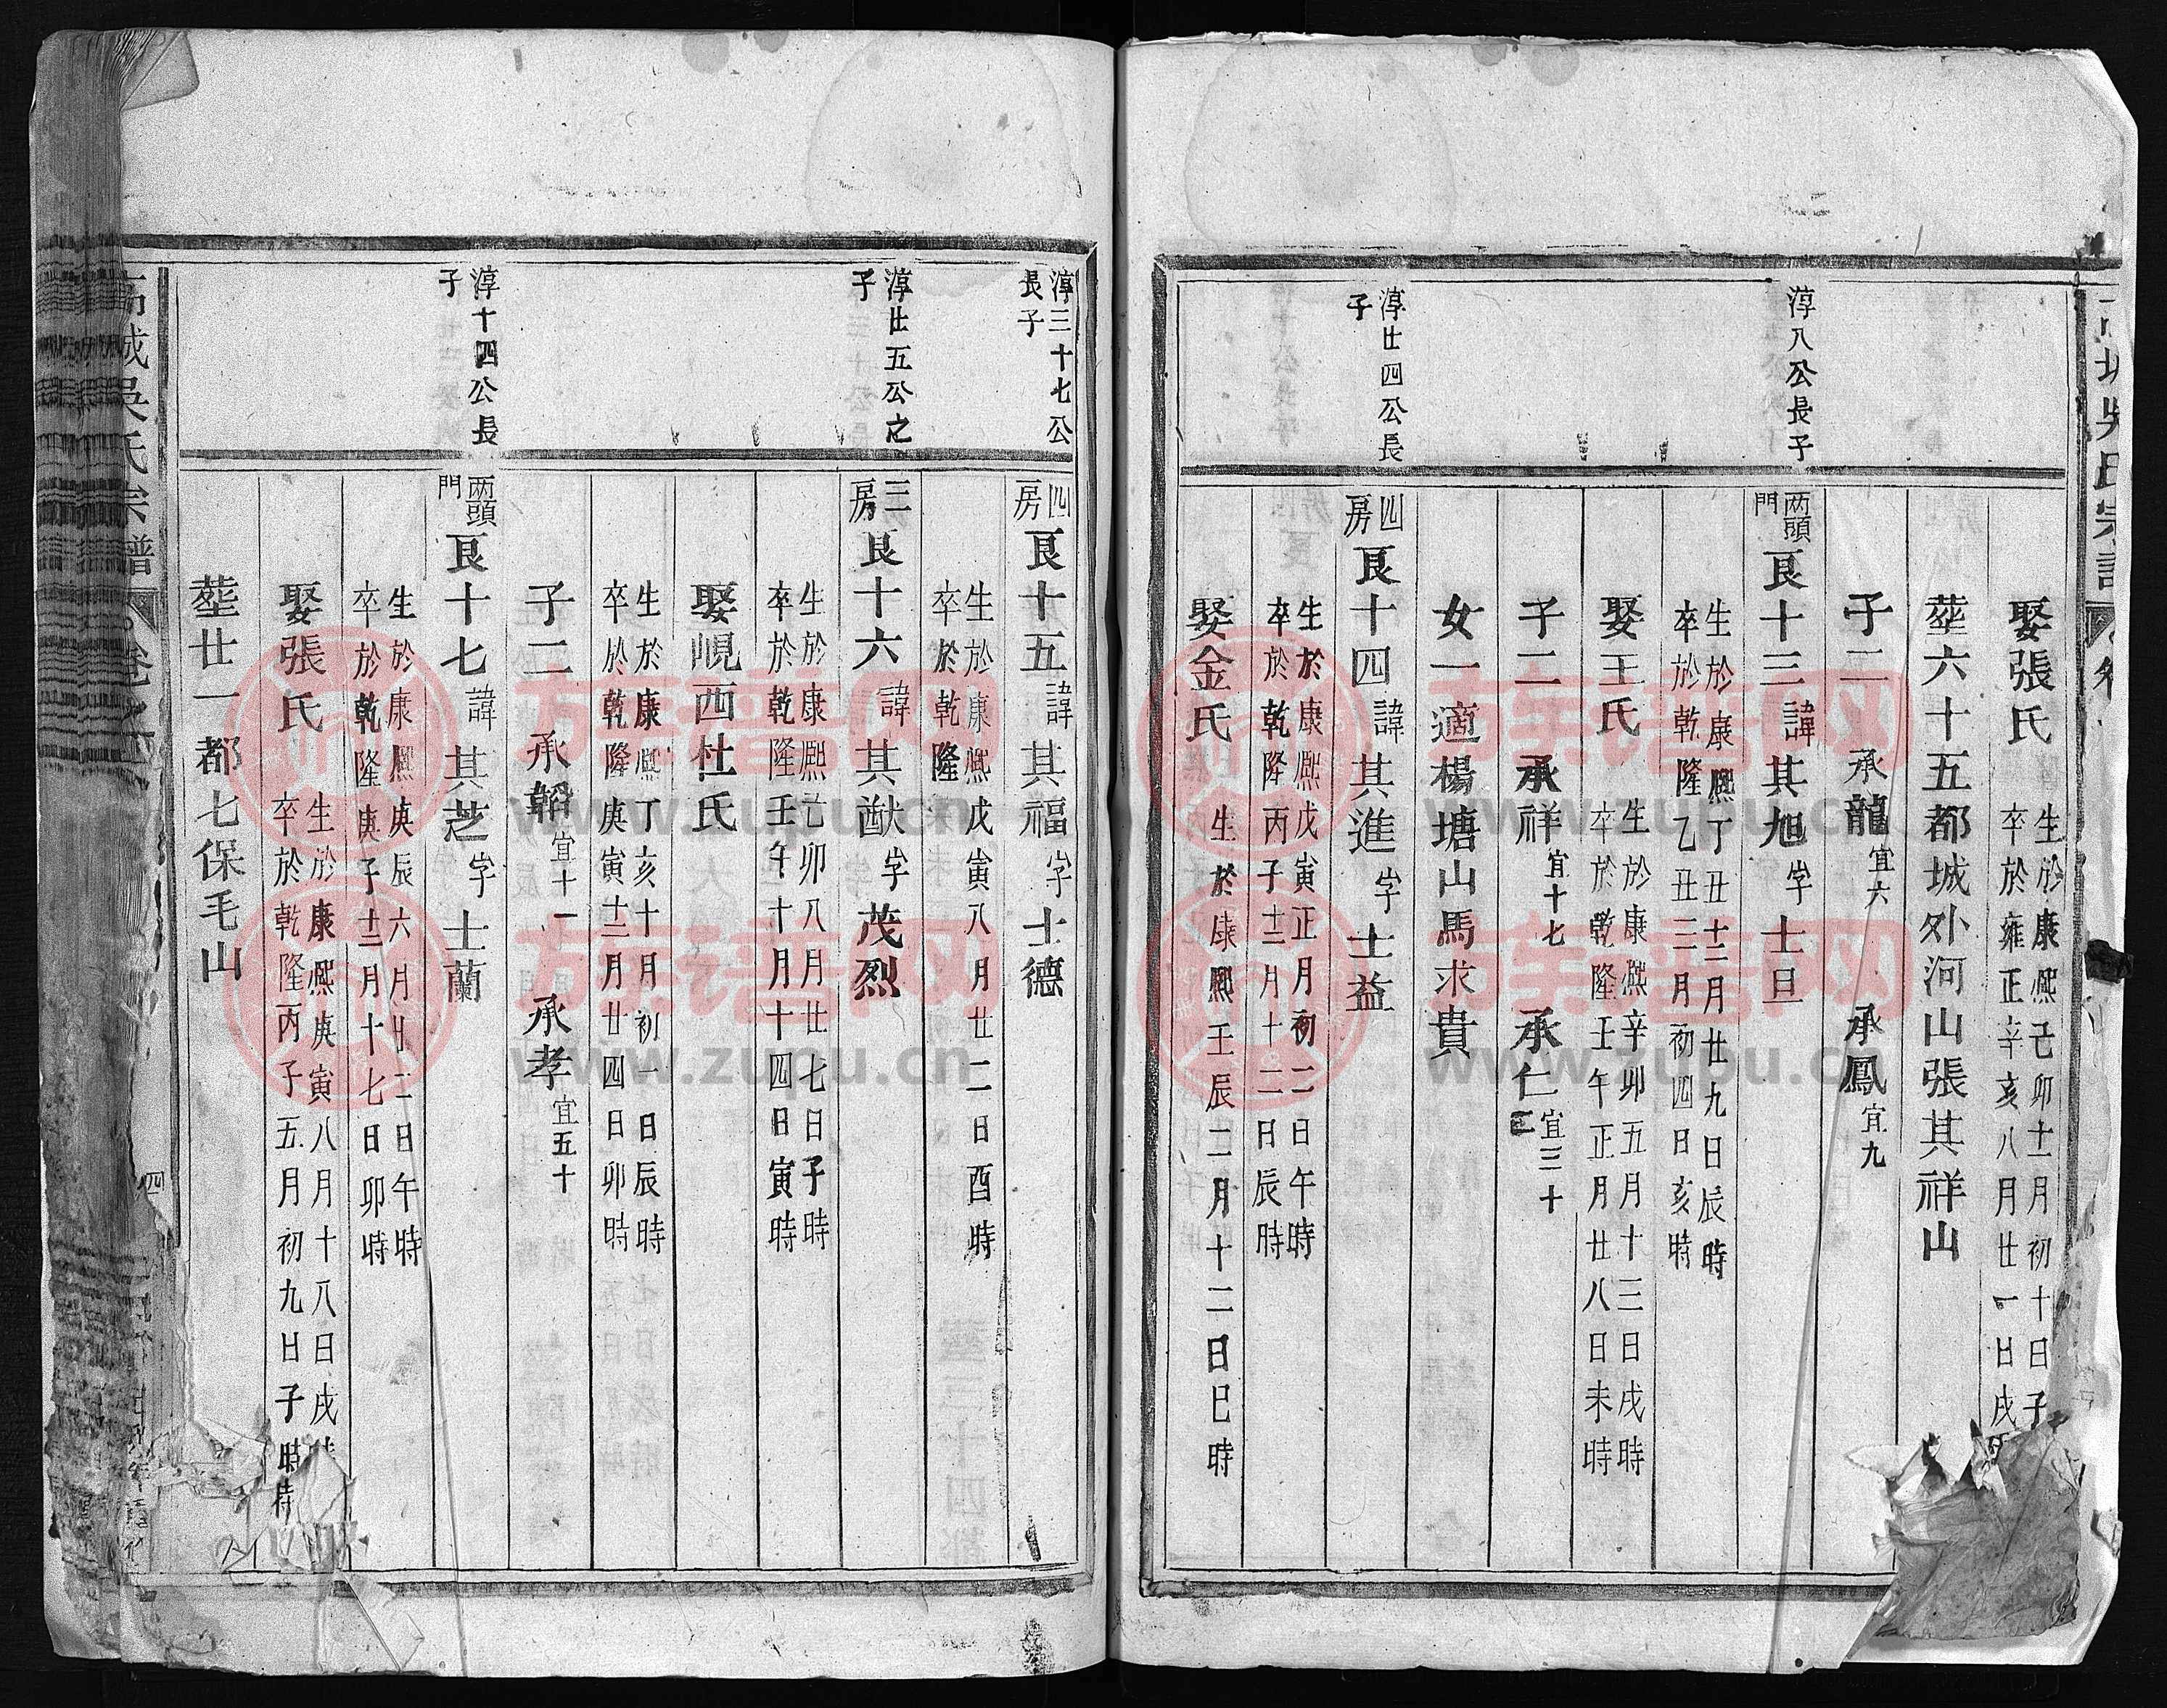 娶張氏
生於康熙己卯十一月初十日子
卒於雍正辛亥八月廿一日戌
塟六十五都城外河山張其祥山
子二 承龍宜六 承鳳宜九
淳八公長子
两頭門
艮十三諱其旭字士旦
生於康熙丁丑十二月廿九日辰時
卒於乾隆乙丑二月初四日亥時
娶王氏
生於康熙辛卯五月十三日戌時
卒於乾隆壬午正月廿八日未時
子二 承祥宜十七 承仁宜三十三
女一適楊塘山馬求貴
淳廿四公長子
四房
艮十四諱其進字士益
生於康熙戊寅正月初二日午時
卒於乾隆丙子十二月十二日辰時
娶金氏
生於康熙壬辰二月十二日巳時
淳三十七公長子
四房
艮十五諱其福字士德
生於康熙戊寅八月廿二日酉時
卒於乾隆
淳廿五公之子
三房
艮十六諱其猷字茂烈
生於康熙己卯八月廿七日子時
卒於乾隆壬午十月十四日寅時
娶峴西杜氏
生於康熙丁亥十月初一日辰時
卒於乾隆庚寅十二月廿四日卯時
子二 承韜宜十一 承孝宜五十
淳十四公長子
两頭門
艮十七諱其芝字士蘭
生於康熙庚辰六月廿二日午時
卒於乾隆庚子十二月十七日卯時
娶張氏
生於康熙庚寅八月十八日戌
卒於乾隆丙子五月初九日子時
塟廿一都七保毛山
城吳氏宗譜
四
族谱网
www.zupu.cn
族谱网
www.zupu.cn
族谱网
www.zupu.cn
族谱网
www.zupu.cn